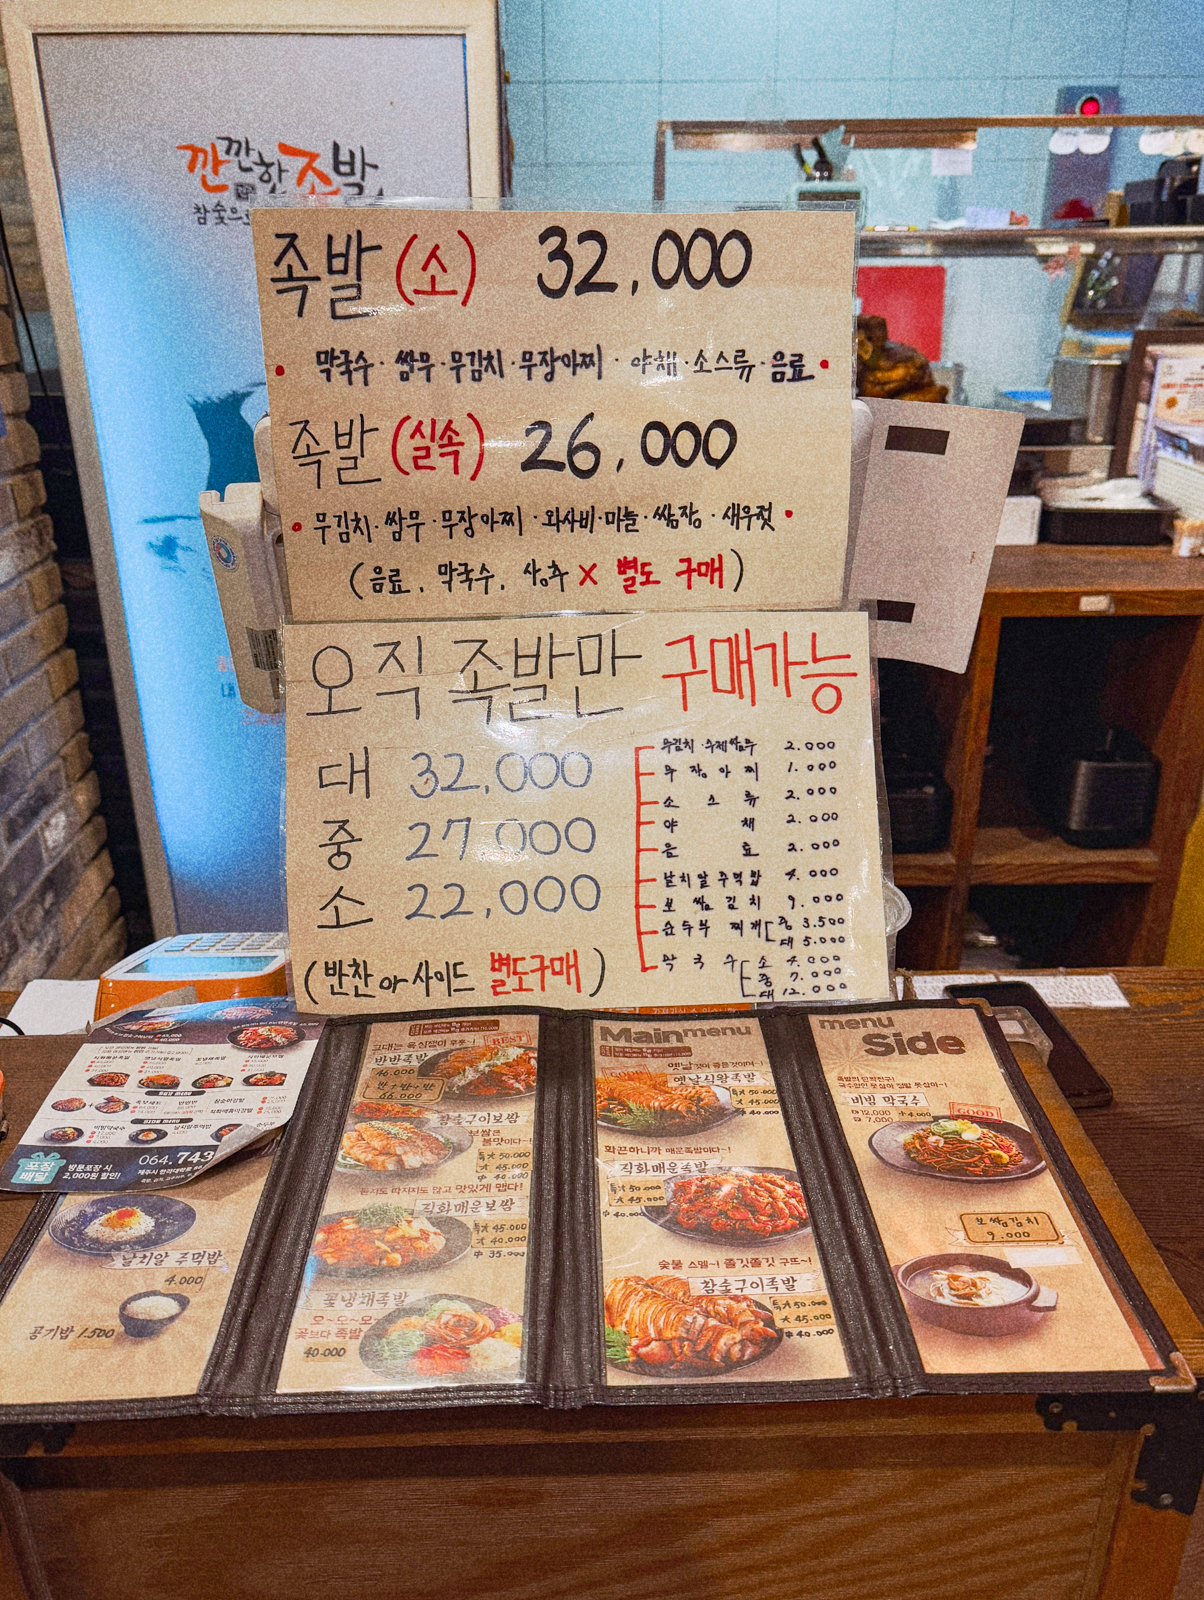 깐깐한족발
참숯으로
족발 (소) 32,000
• 막국수 · 쌈무 · 무김치 · 무장아찌 · 야채 · 소스류 · 음료 •
족발 (실속) 26,000
• 무김치 · 쌈무 · 무장아찌 · 와사비 · 마늘 · 쌈장 · 새우젓 •
(음료, 막국수, 상추 X 별도 구매)
오직 족발만 구매가능
대 32,000
중 27,000
소 22,000
(반찬 or 사이드 별도구매)
무김치·수제쌈무 2.000
무장아찌 1.000
소스류 2.000
야채 2.000
음료 2.000
날치알주먹밥 4.000
보쌈김치 9.000
순두부찌개 중 3.500
대 5.000
막국수 소 4.000
중 7.000
대 12.000
포장 배달
방문포장 시
2,000원 할인!
064.743
날치알 주먹밥
4.000
공기밥 1.500
BEST
반반족발
46.000
반+반+반
66.000
참숯구이보쌈
보쌈은
불맛이다~!
특大 50.000
大 45.000
中 40.000
묻지도 따지지도 않고 맛있게 맵다!
직화매운보쌈
特大 45.000
大 40.000
中 35.000
꽃냉채족발
오~오~오~
꽃보다 족발
40.000
Main menu
옛날 것이 좋은것이여~!
옛날식왕족발
특大 50.000
大 45.000
中 40.000
화끈하니까 매운족발이다~!
직화매운족발
특大 50.000
大 45.000
中 40.000
숯불 스멜~! 쫄깃쫄깃 구뜨~!
참숯구이족발
특大 50.000
大 45.000
中 40.000
menu
Side
족발의 단짝친구!
비빔 막국수
대 12,000
중 7,000
소 4.000
GOOD
보쌈김치
9.000